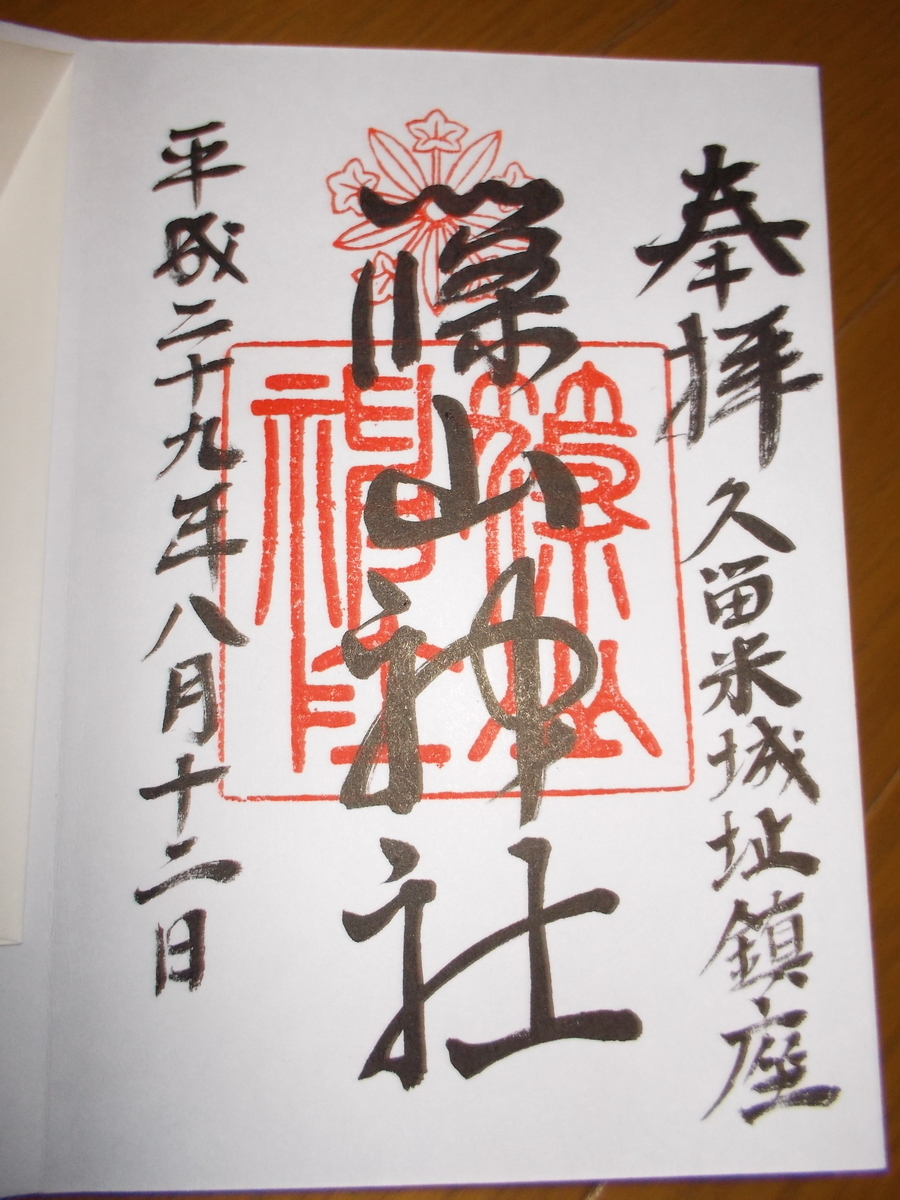 奉拝
久留米城址鎮座
篠山神社
平成二十九年八月十二日